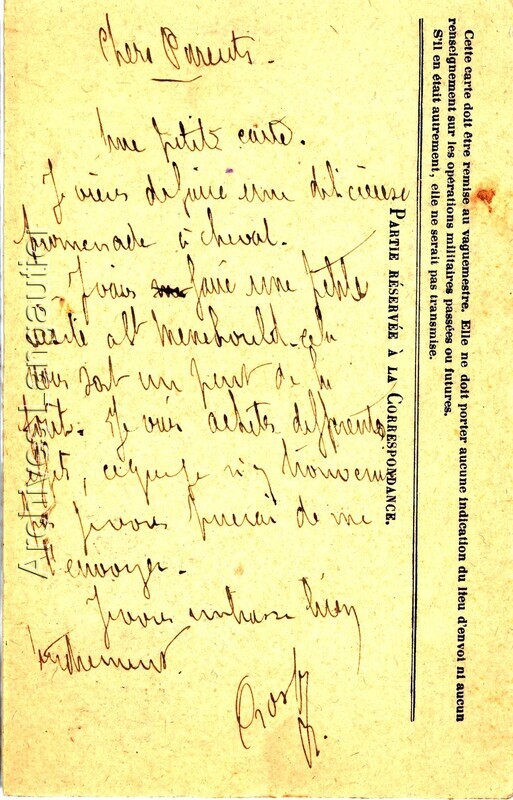 Chers Parents.
Une petite carte.
Je viens de faire une délicieuse
promenade à cheval.
Je vais faire une petite
visite a St Menehould. cela
vous sort un peut de la
Je vais acheter différents
, ce que je n'y trouverai
pas je vous prierai de me
l'envoyer.
Je vous embrasse bien
tendrement.
Cette carte doit être remise au vaguemestre. Elle ne doit porter aucune indication du lieu d'envoi ni aucun
renseignement sur les opérations militaires passées ou futures.
S'il en était autrement, elle ne serait pas transmise.
PARTIE RÉSERVÉE À LA CORRESPONDANCE.